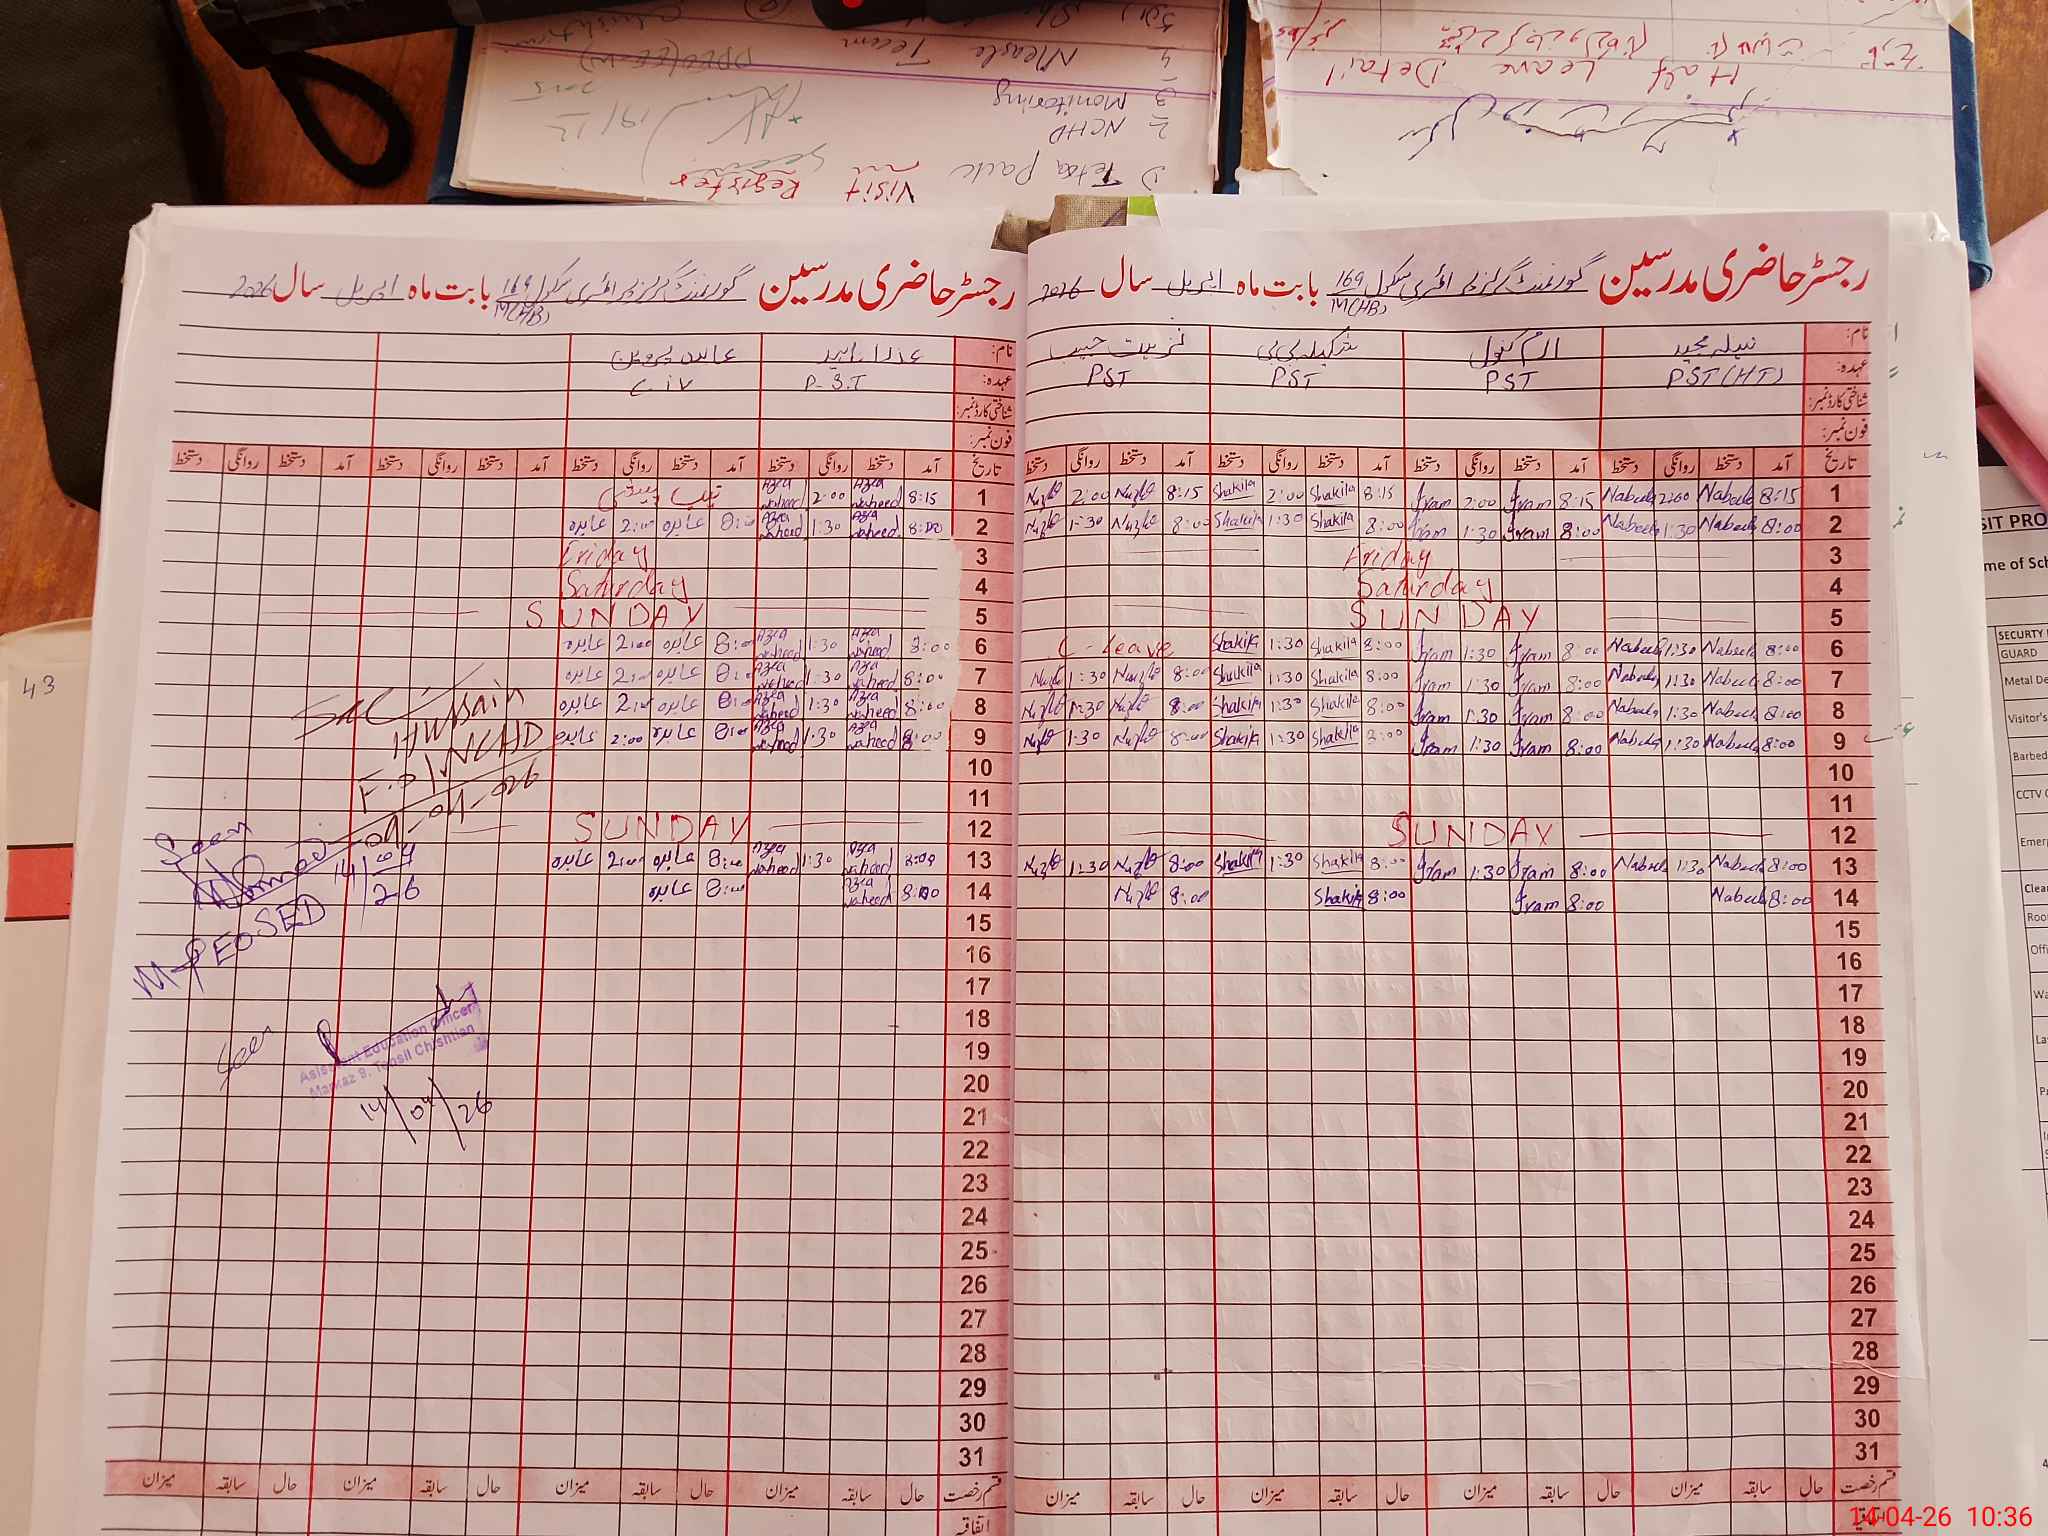 Visit Register
1) Tetra pack
2 NCHD
3 Monitoring
4 Measle Team
19/12
2025
Half Leave Detail
رجسٹر حاضری مدرسین گورنمنٹ گرلز پرائمری سکول 169 بابت ماہ اپریل سال 2026
نام: نبیلہ مجید ارم کنول شکیلہ بی بی نزہت حبیب
عہدہ: PST (HT) PST PST PST
شناختی کارڈ نمبر:
فون نمبر:
تاریخ آمد دستخط روانگی دستخط آمد دستخط روانگی دستخط آمد دستخط روانگی دستخط آمد دستخط روانگی دستخط
1 8:15 Nabeela 2:00 Nabeela 8:15 Iram 2:00 Iram 8:15 Shakila 2:00 Shakila 8:15 Nuzht 2:00 Nuzht
2 8:00 Nabeela 1:30 Nabeela 8:00 Iram 1:30 Iram 8:00 Shakila 1:30 Shakila 8:00 Nuzht 1:30 Nuzht
3 Friday
4 Saturday
5 SUNDAY
6 8:00 Nabeela 1:30 Nabeela 8:00 Iram 1:30 Iram 8:00 Shakila 1:30 Shakila C-Leave
7 8:00 Nabeela 1:30 Nabeela 8:00 Iram 1:30 Iram 8:00 Shakila 1:30 Shakila 8:00 Nuzht 1:30 Nuzht
8 8:00 Nabeela 1:30 Nabeela 8:00 Iram 1:30 Iram 8:00 Shakila 1:30 Shakila 8:00 Nuzht 1:30 Nuzht
9 8:00 Nabeela 1:30 Nabeela 8:00 Iram 1:30 Iram 8:00 Shakila 1:30 Shakila 8:00 Nuzht 1:30 Nuzht
10
11
12 SUNDAY
13 8:00 Nabeela 1:30 Nabeela 8:00 Iram 1:30 Iram 8:00 Shakila 1:30 Shakila 8:00 Nuzht 1:30 Nuzht
14 8:00 Nabeela 8:00 Iram 8:00 Shakila 8:00 Nuzht
15
16
17
18
19
20
21
22
23
24
25
26
27
28
29
30
31
قسم رخصت حال سابقہ میزان حال سابقہ میزان حال سابقہ میزان حال سابقہ میزان
رجسٹر حاضری مدرسین گورنمنٹ گرلز پرائمری سکول 169 بابت ماہ اپریل سال 2026
نام: عذرا وحید عابدہ پروین
عہدہ: P.S.T C.iv
شناختی کارڈ نمبر:
فون نمبر:
تاریخ آمد دستخط روانگی دستخط آمد دستخط روانگی دستخط آمد دستخط روانگی دستخط آمد دستخط روانگی دستخط
1 8:15 Azra waheed 2:00 Azra waheed
2 8:00 Azra waheed 1:30 Azra waheed 8:00 عابدہ 2:00 عابدہ
3 Friday
4 Saturday
5 SUNDAY
6 8:00 Azra waheed 1:30 Azra waheed 8:00 عابدہ 2:00 عابدہ
7 8:00 Azra waheed 1:30 Azra waheed 8:00 عابدہ 2:00 عابدہ
8 8:00 Azra waheed 1:30 Azra waheed 8:00 عابدہ 2:00 عابدہ
9 8:00 Azra waheed 1:30 Azra waheed 8:00 عابدہ 2:00 عابدہ
10
11
12 SUNDAY
13 8:00 Azra waheed 1:30 Azra waheed 8:00 عابدہ 2:00 عابدہ
14 8:00 Azra waheed 8:00 عابدہ
15
16
17
18
19
20
21
22
23
24
25
26
27
28
29
30
31
قسم رخصت حال سابقہ میزان حال سابقہ میزان حال سابقہ میزان حال سابقہ میزان
اتفاقیہ
Hussain
F.O NCHD
09-04-026
Seen
14/04/26
Seen
Assistant Education Officer
Markaz 9, Tehsil Chishtian
14/04/26
43
SIT PRO
me of Sch
SECURTY
GUARD
Metal De
Visitor's
Barbed
CCTV
Emerg
Clean
Roo
Offi
14-04-26 10:36